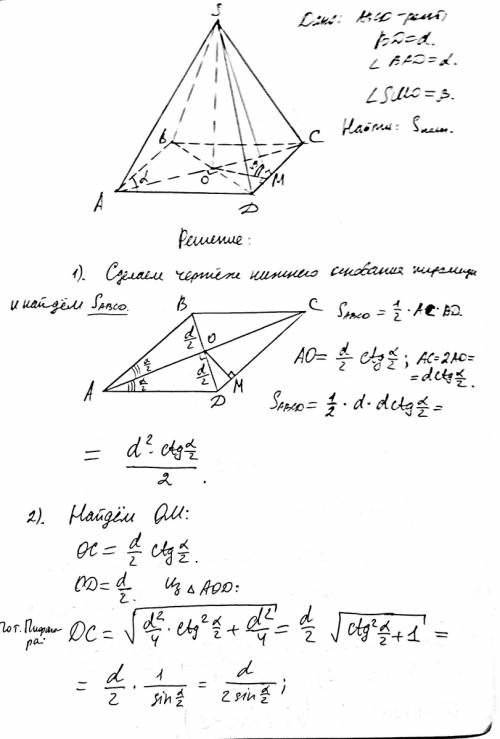 S
Дано: ABCD-ромб;
BD=d.
∠BAD=α.
∠SMO=β.
Найти: Sполн.
B
C
α
O
β
M
A
D
Решение:
1). Сделаем чертёж нижнего основания пирамиды
и найдём SABCD.
B
C
SABCD = 1/2 · AC · BD.
d/2
O
α/2
α/2
d/2
AO = d/2 ctg α/2; AC=2AO=
= d ctg α/2.
A
D
M
SABCD = 1/2 · d · d ctg α/2 =
= d² · ctg α/2 / 2.
2). Найдём OM:
OC = d/2 ctg α/2.
OD = d/2. Из △AOD:
по т. Пифаго-
ра: DC = √(d²/4 · ctg² α/2 + d²/4) = d/2 √(ctg² α/2 + 1) =
= d/2 · 1/sin α/2 = d/(2 sin α/2);